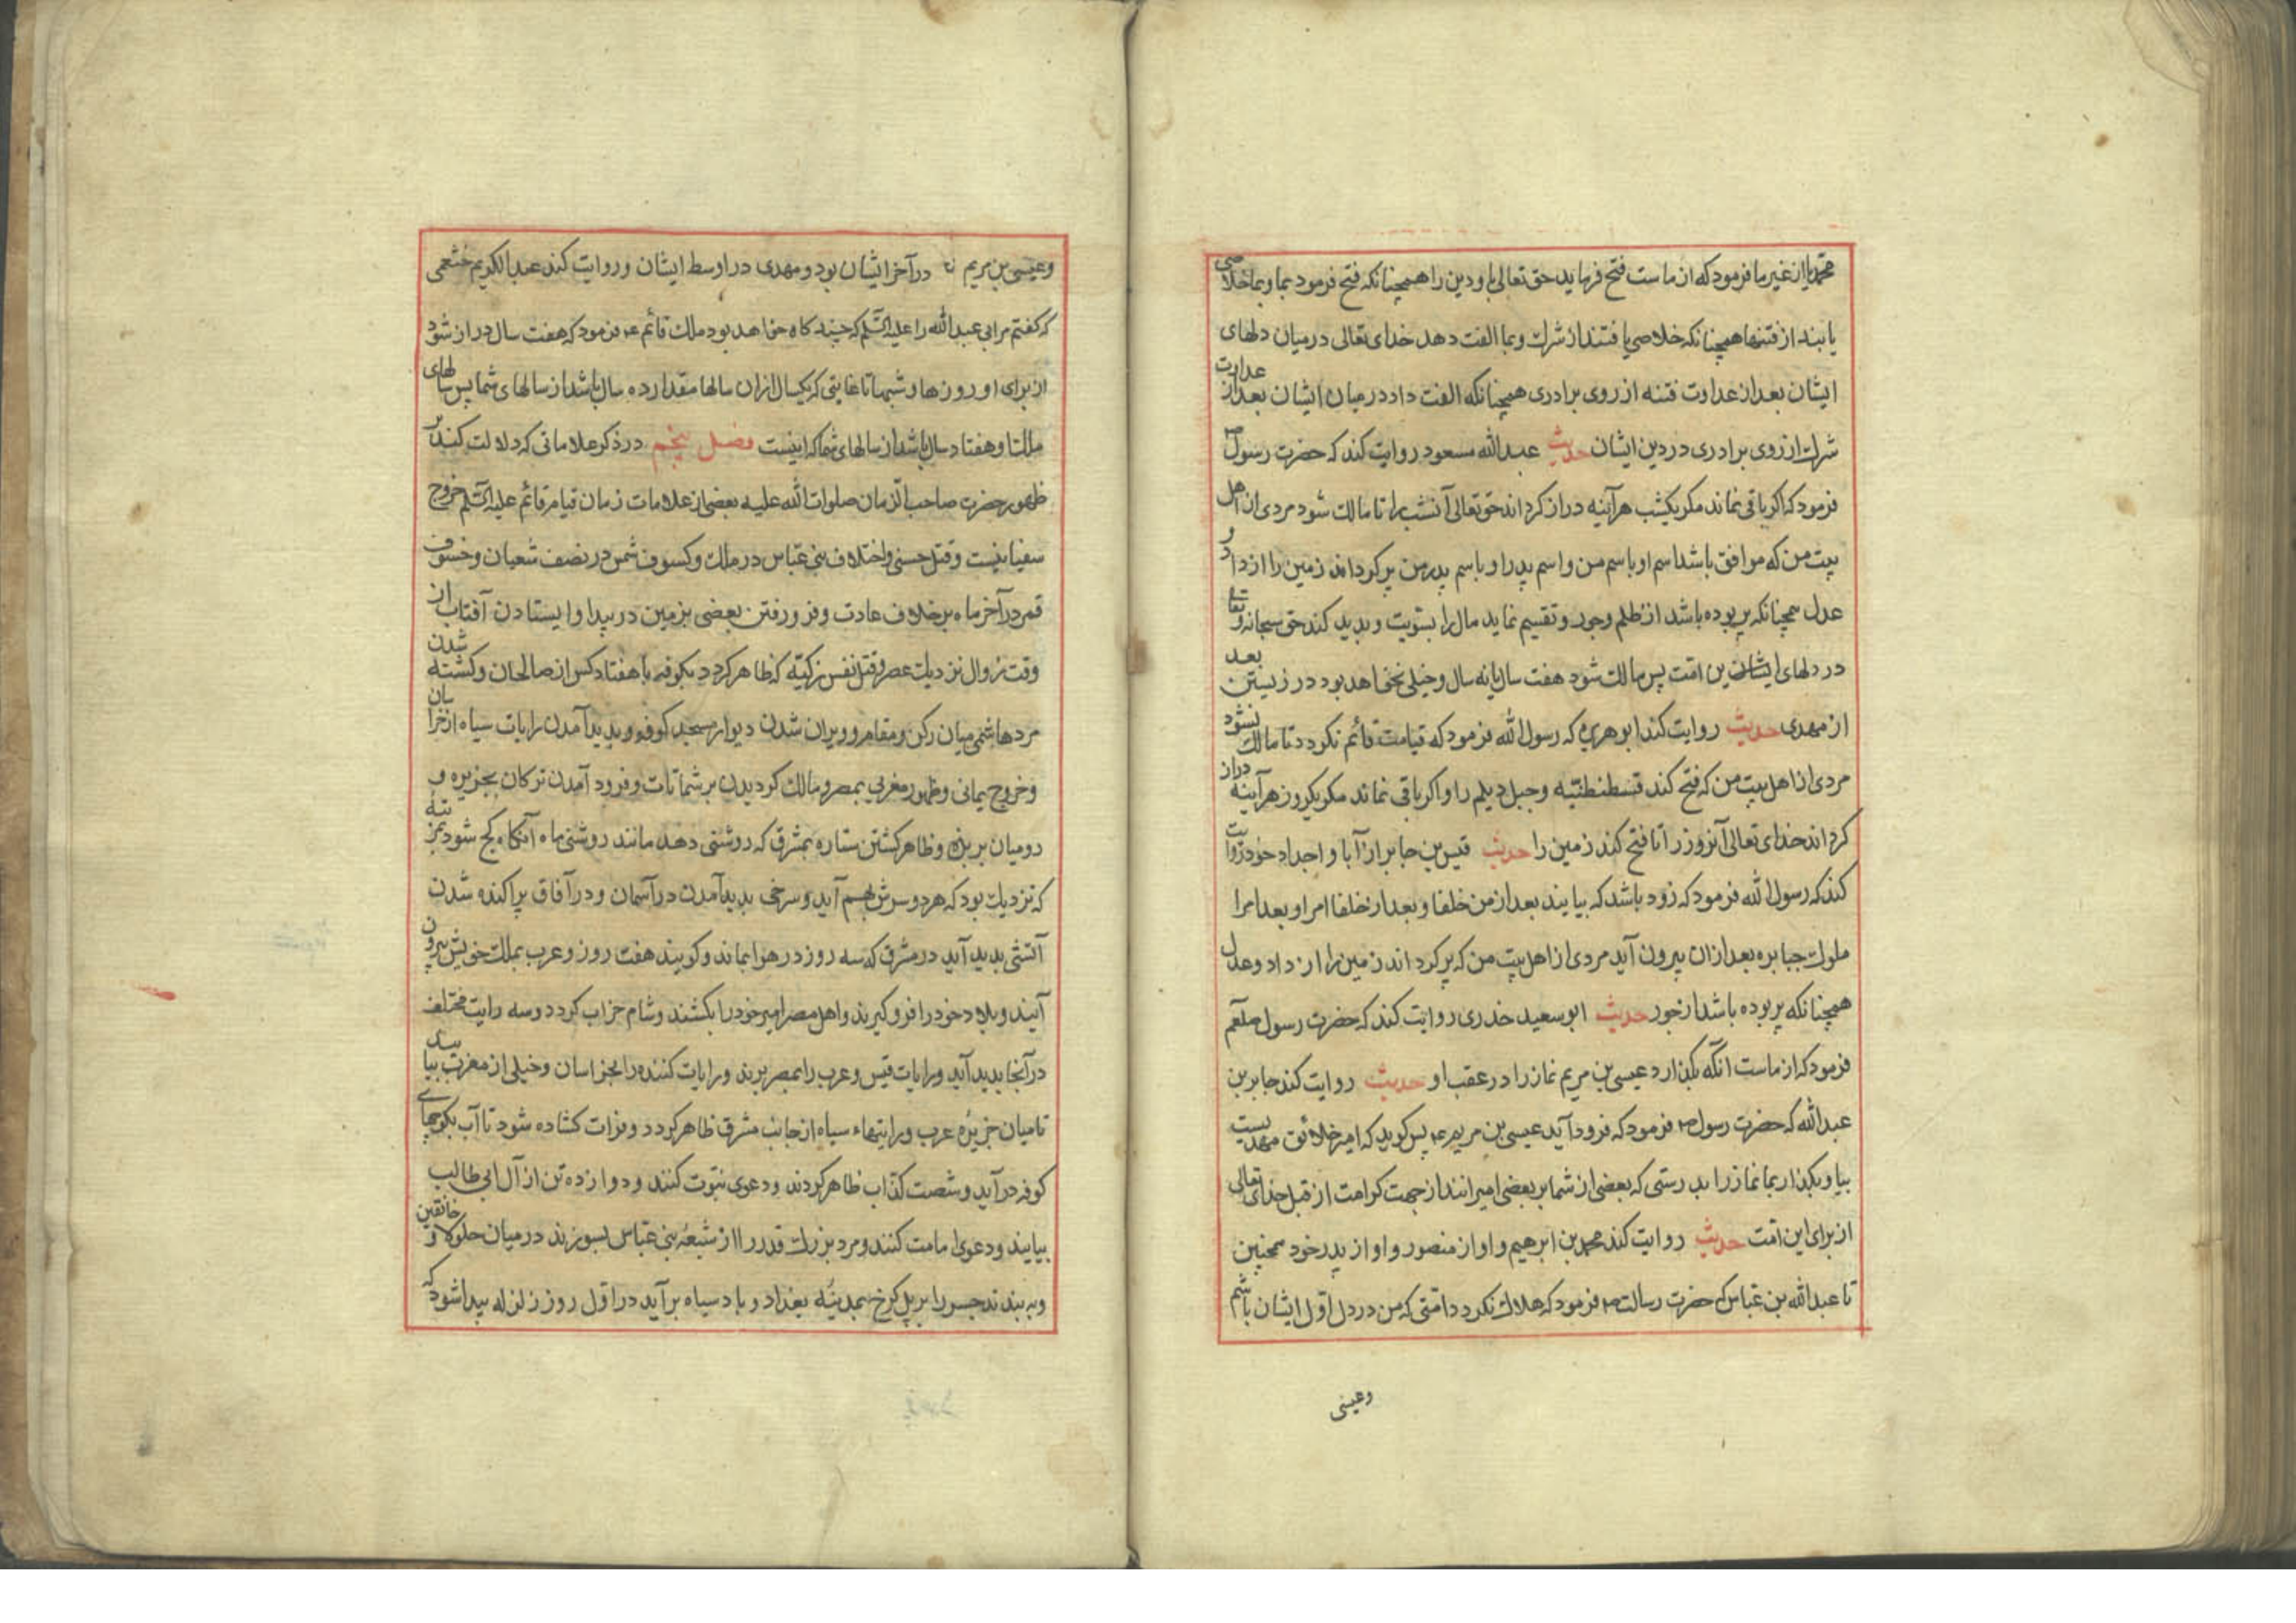 محمدیا از غیر ما فرمود که از ماست فتح فرماید حق تعالی باو دین را همچنانکه فتح فرمود بما و بما خلاصی
یابند از فتنها همچنانکه خلاصی یافتند از شرک و بما الفت دهد خدای تعالی در میان دلهای
ایشان بعد از عداوت فتنه از روی برادری همچنانکه الفت داد در میان ایشان بعد از عداوت
شرک از روی برادری در دین ایشان حدیث عبدالله مسعود روایت کند که حضرت رسول ص
فرمود که اکر باقی نماند مکر یکشب هر آینه دراز کرداند حق تعالی آنشب را تا مالک شود مردی از اهل
بیت من که موافق باشد اسم او باسم من و اسم پدر او باسم پدر من پر کرداند زمین را از داد و
عدل همچنانکه پر بوده باشد از ظلم و جور و تقسیم نماید مال را بسویت و بدید کند حق سبحانه و تعالی
در دلهای ایشان این امت پس مالک شود هفت سال یا نه سال و خیلی نخواهد بود در زیستن بعد
از مهدی حدیث روایت کند ابو هریره که رسول الله فرمود که قیامت قائم نکردد تا مالک نشود
مردی از اهل بیت من که فتح کند قسطنطنیه و جبل دیلم را و اکر باقی نماند مکر یکروز هر آینه دراز
کرداند خدای تعالی آنروز را تا فتح کند زمین را حدیث قیس بن جابر از آبا و اجداد خود روایت
کند که رسول الله فرمود که زود باشد که بیایند بعد از من خلفا و بعد از خلفا امرا و بعد امرا
ملوک جبابره بعد ازان بیرون آید مردی از اهل بیت من که پر کرداند زمین را از داد و عدل
همچنانکه پر بوده باشد از جور حدیث ابو سعید خدری روایت کند که حضرت رسول صلعم
فرمود که از ماست آنکه بکذارد عیسی بن مریم نماز را در عقب او حدیث روایت کند جابر بن
عبدالله که حضرت رسول ص فرمود که فرود آید عیسی بن مریم ع پس کوید که امیر خلائق مهدیست
بیا و بکذار بما نماز را بدرستی که بعضی از شما بر بعضی امیرانند از جهت کرامت از قبل خدای تعالی
از برای این امت حدیث روایت کند محمد بن ابرهیم و او از منصور و او از پدر خود همچنین
تا عبدالله بن عباس که حضرت رسالت ص فرمود که هلاک نکردد امتی که من در دل اول ایشان باشم
وعیسی
وعیسی بن مریم در آخر ایشان بود و مهدی در اوسط ایشان و روایت کند عبدالکریم خثعمی
که کفتم مر ابی عبدالله را علیه السلم که چند کاه خواهد بود ملک قائم ع فرمود که هفت سال دراز شود
از برای او روزها و شبها تا غایتی که یکسال ازان سالها مقدار ده سال باشد از سالهای شما پس سالهای
ملک او هفتاد سال باشد از سالهای شما که اینست فصل پنجم در ذکر علاماتی که دلالت کند بر
ظهور حضرت صاحب الزمان صلوات الله علیه بعضی از علامات زمان قیام قائم علیه السلم خروج
سفیانیست و قتل حسنی و اختلاف بنی عباس در ملک و کسوف شمس در نصف شعبان و خسوف
قمر در آخر ماه بر خلاف عادت و فرو رفتن بعضی بزمین در بیدا و ایستادن آفتاب از
وقت زوال نزدیک عصر و قتل نفس زکیه که ظاهر کردد بکوفه با هفتاد کس از صالحان و کشته شدن
مرد هاشمی میان رکن و مقام و ویران شدن دیوار مسجد کوفه و بدید آمدن رایات سیاه از خراسان
و خروج یمانی و ظهور مغربی بمصر و مالک کردیدن بر شمات و فرود آمدن ترکان بجزیره و
رومیان برمله و ظاهر کشتن ستاره بمشرق که روشنی دهد مانند روشنی ماه آنکاه کج شود بمرتبه
که نزدیک بود که هر دو سرش بهم آید و سرخی بدید آمدن در آسمان و در آفاق پراکنده شدن
آتشی بدید آید در مشرق که سه روز در هوا بماند و کویند هفت روز و عرب بملک خویش بیرون
آیند و بلاد خود را فرو کیرند و اهل مصر امیر خود را بکشند و شام خراب کردد و سه رایت مختلف
در آنجا بدید آید و رایات قیس و عرب را بمصر برند و رایات کننده را بخراسان و خیلی از مغرب بیاید
تا میان جزیره عرب و رایتهاء سیاه از جانب مشرق ظاهر کردد و فرات کشاده شود تا آب بکوچهای
کوفه در آید و شصت کذاب ظاهر کردند و دعوی نبوت کنند و دوازده تن از آل ابی طالب
بیایند و دعوی امامت کنند و مرد بزرک قدر را از شیعه بنی عباس بسوزند در میان جلولا و خانقین
و به بندند جسر را بر پل کرخ بمدینه بغداد و باد سیاه بر آید در اول روز زلزله پیدا شود که